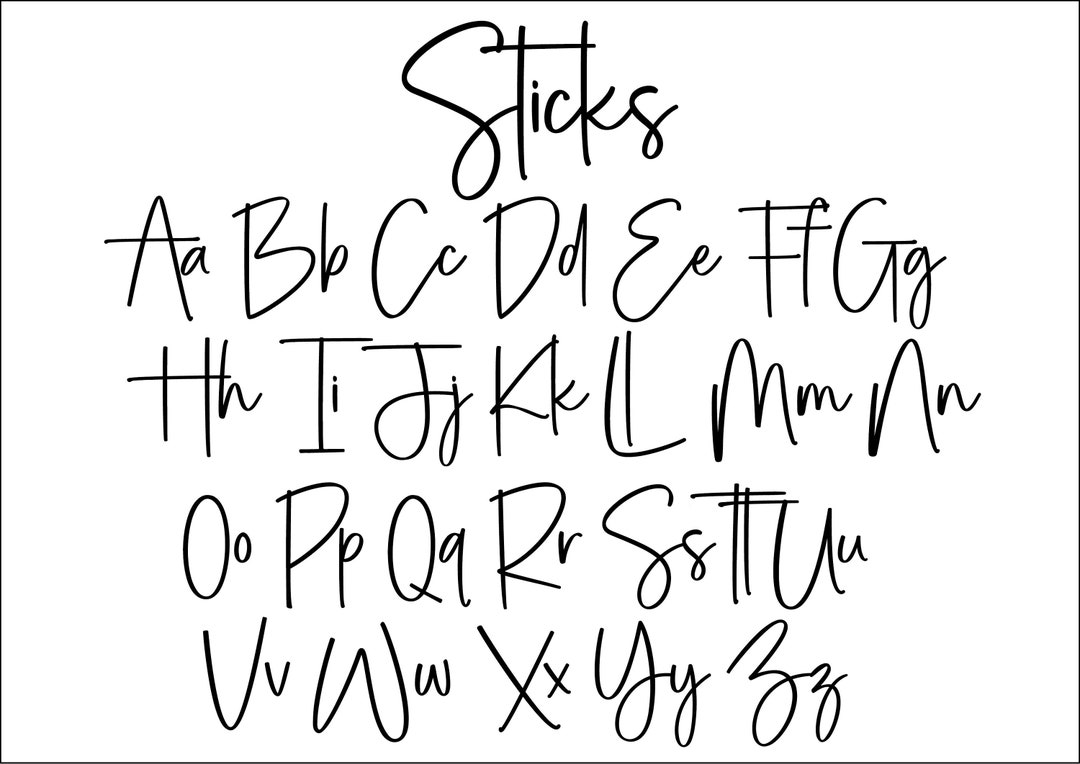 Sticks
Aa Bb Cc Dd Ee Ff Gg
Hh Ii Jj Kk Ll Mm Nn
Oo Pp Qq Rr Ss Tt Uu
Vv Ww Xx Yy Zz